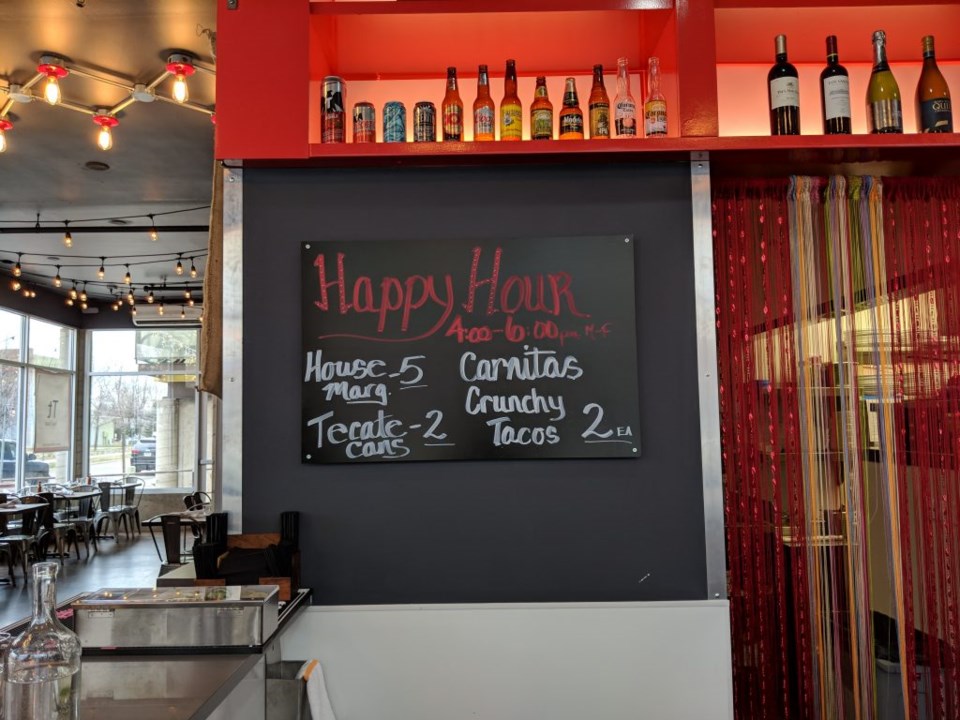 Happy Hour
4:00-6:00pm M-F
House - 5
Marg.
Tecate - 2
cans
Carnitas
Crunchy
Tacos 2 EA